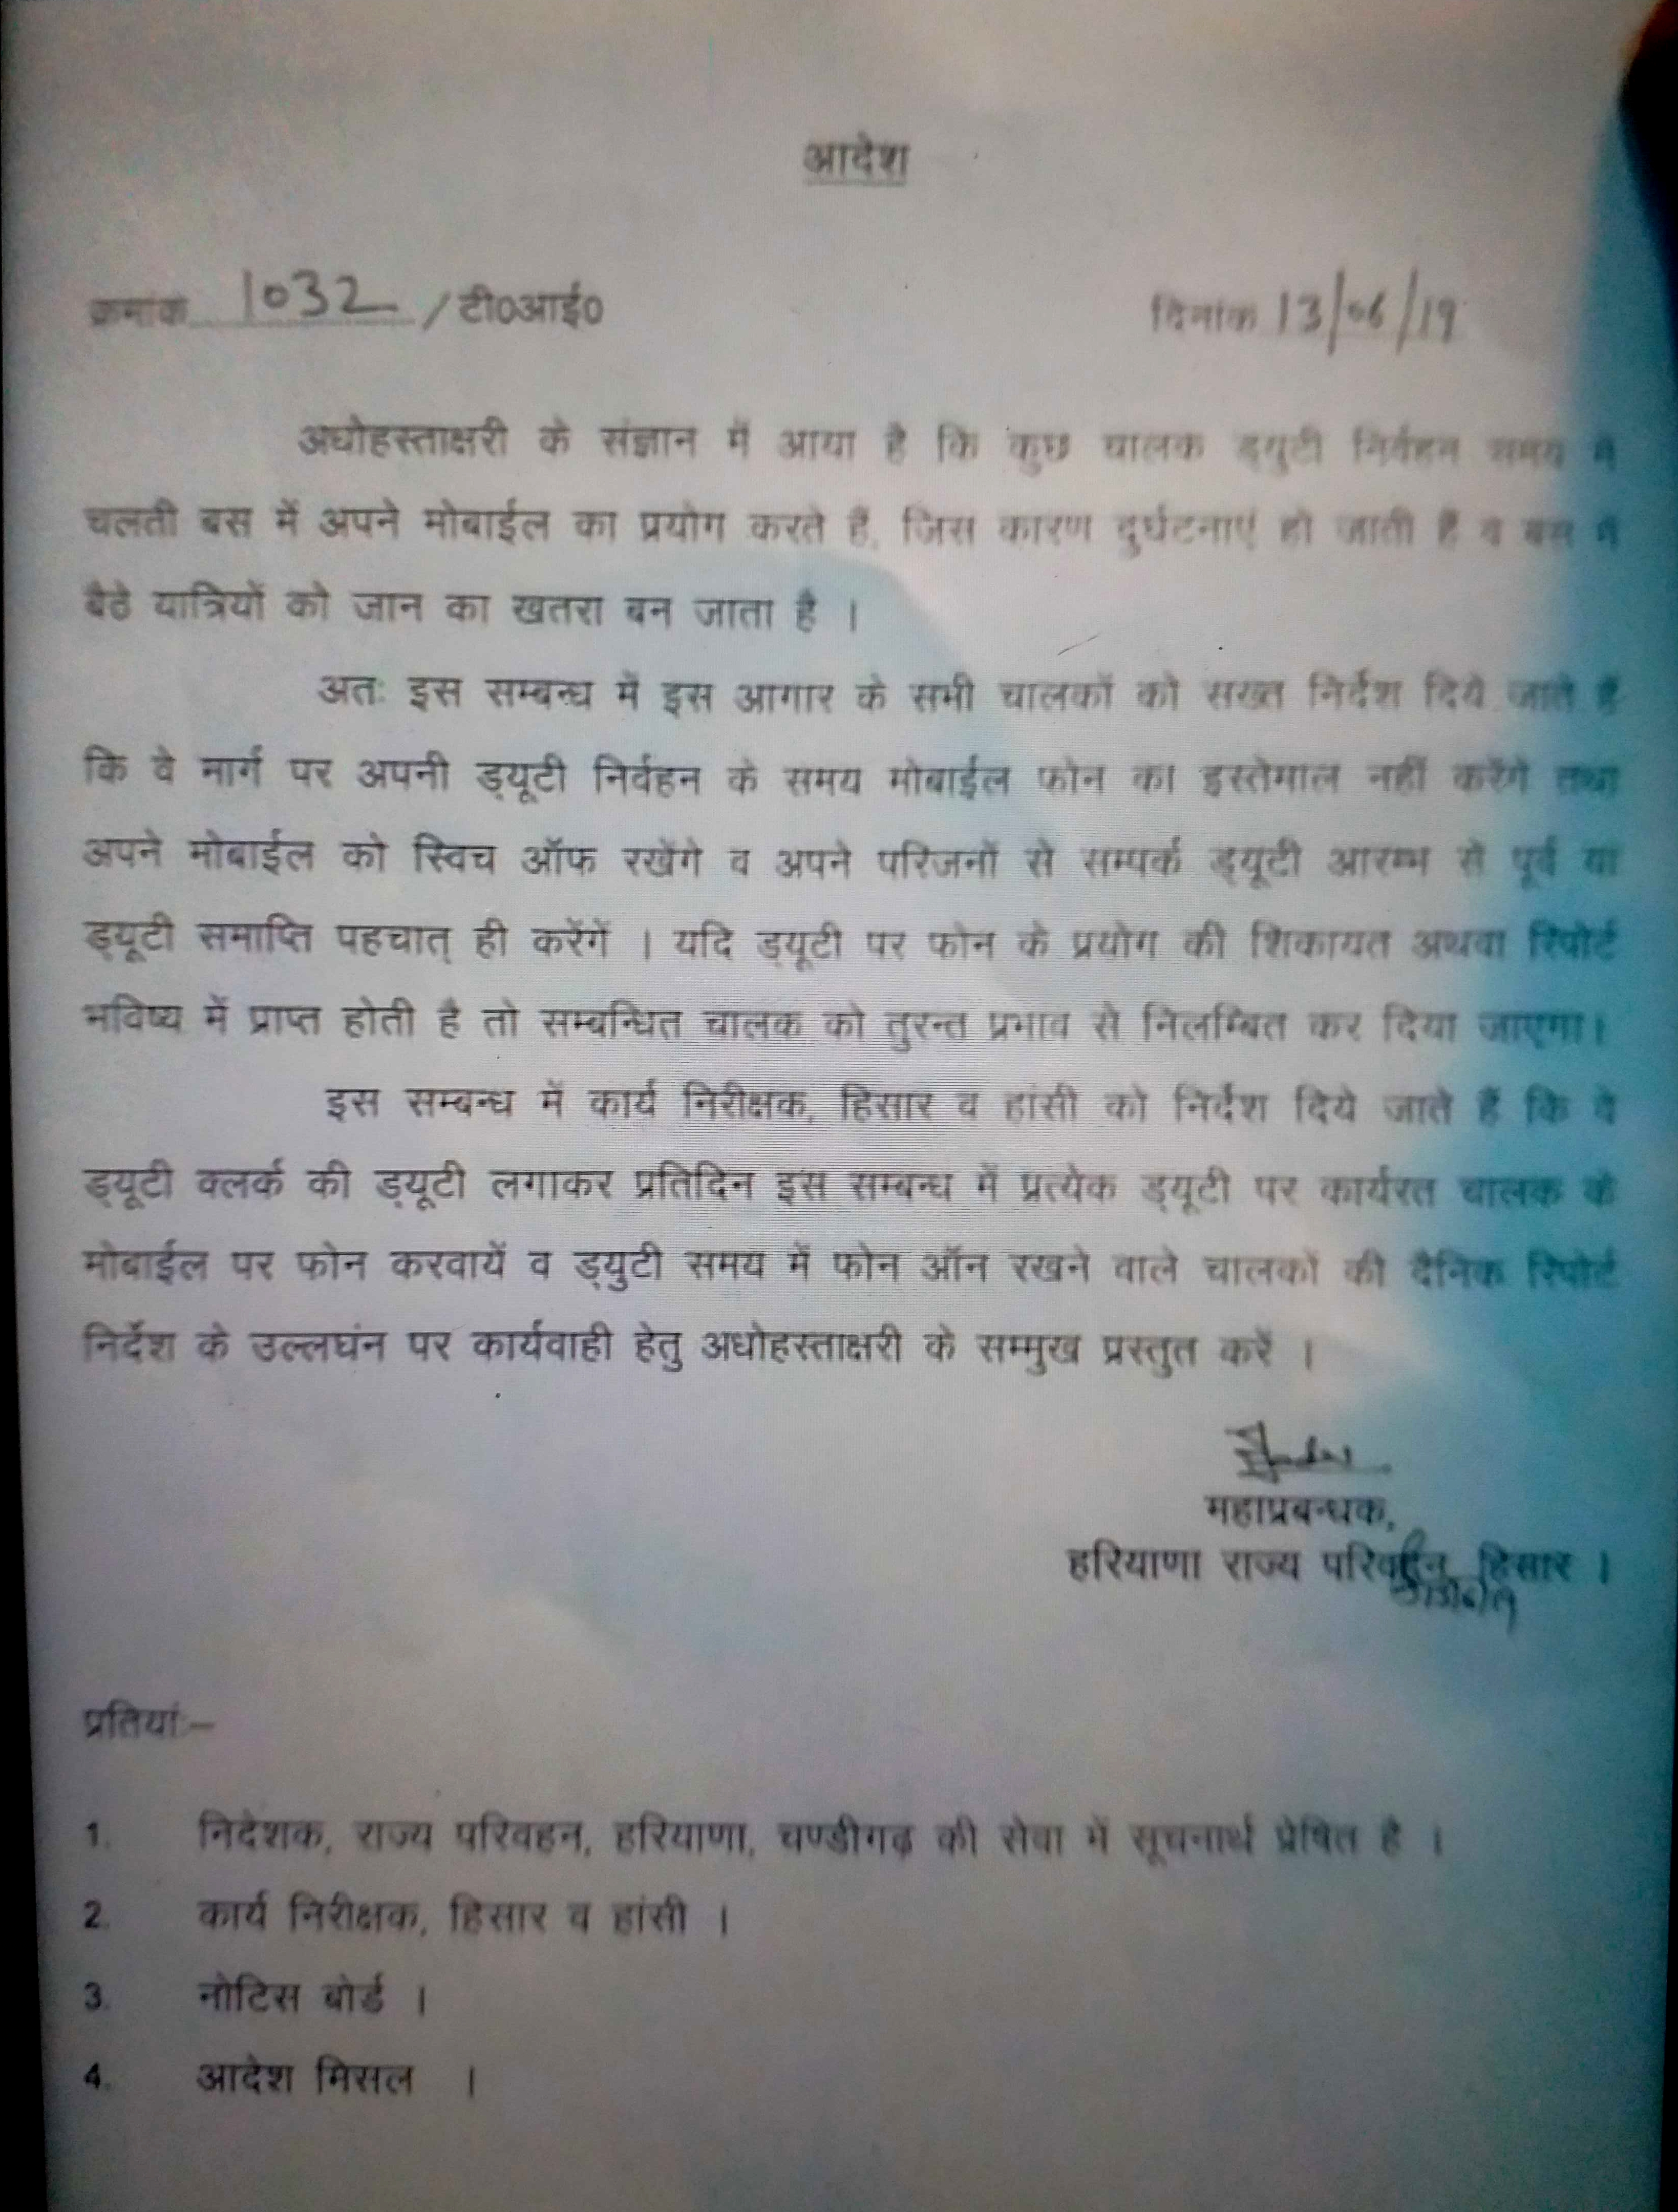 आदेश
क्रमांक 1032 /टी0आई0 दिनांक 13/06/19
अधोहस्ताक्षरी के संज्ञान में आया है कि कुछ चालक ड्युटी निर्वहन समय में
चलती बस में अपने मोबाईल का प्रयोग करते हैं, जिस कारण दुर्घटनाएं हो जाती हैं व बस में
बैठे यात्रियों को जान का खतरा बन जाता है ।
अतः इस सम्बन्ध में इस आगार के सभी चालकों को सख्त निर्देश दिये जाते हैं
कि वे मार्ग पर अपनी ड्यूटी निर्वहन के समय मोबाईल फोन का इस्तेमाल नहीं करेंगे तथा
अपने मोबाईल को स्विच ऑफ रखेंगे व अपने परिजनों से सम्पर्क ड्यूटी आरम्भ से पूर्व या
ड्यूटी समाप्ति पहचात् ही करेंगें । यदि ड्यूटी पर फोन के प्रयोग की शिकायत अथवा रिपोर्ट
भविष्य में प्राप्त होती है तो सम्बन्धित चालक को तुरन्त प्रभाव से निलम्बित कर दिया जाएगा।
इस सम्बन्ध में कार्य निरीक्षक, हिसार व हांसी को निर्देश दिये जाते हैं कि वे
ड्यूटी क्लर्क की ड्यूटी लगाकर प्रतिदिन इस सम्बन्ध में प्रत्येक ड्यूटी पर कार्यरत चालक के
मोबाईल पर फोन करवायें व ड्युटी समय में फोन ऑन रखने वाले चालकों की दैनिक रिपोर्ट
निर्देश के उल्लघंन पर कार्यवाही हेतु अधोहस्ताक्षरी के सम्मुख प्रस्तुत करें ।
महाप्रबन्धक,
हरियाणा राज्य परिवहन, हिसार ।
प्रतियां:–
1. निदेशक, राज्य परिवहन, हरियाणा, चण्डीगढ़ की सेवा में सूचनार्थ प्रेषित है ।
2. कार्य निरीक्षक, हिसार व हांसी ।
3. नोटिस बोर्ड ।
4. आदेश मिसल ।